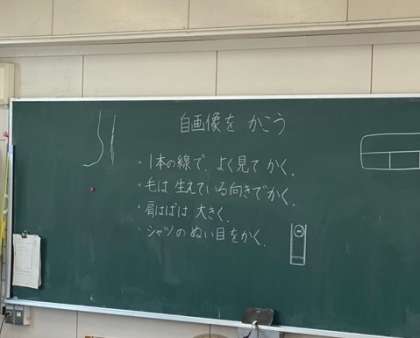 自画像を かこう
・1本の線で、よく見て かく。
・毛は 生えている向きでかく。
・肩はばは 大きく。
・シャツの ぬい目をかく。